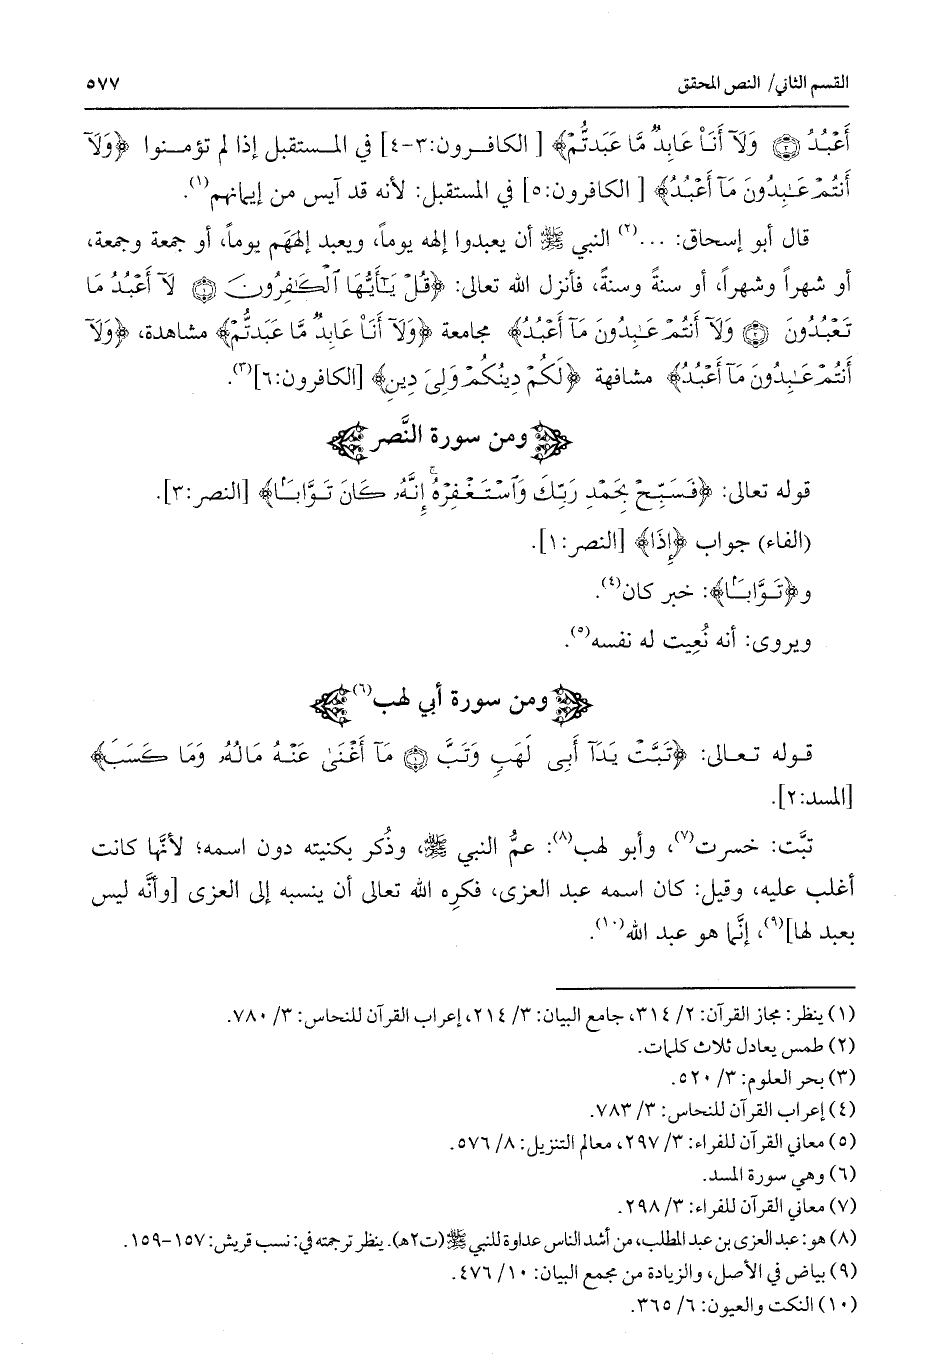 القسم الثاني/ النص المحقق ٥٧٧
أَعْبُدُ ۝٣ وَلَآ أَنَا۠ عَابِدٌ مَّا عَبَدتُّمْ﴾ [الكافرون:٣-٤] في المستقبل إذا لم تؤمنوا ﴿وَلَآ
أَنتُمْ عَٰبِدُونَ مَآ أَعْبُدُ﴾ [الكافرون:٥] في المستقبل: لأنه قد آيس من إيمانهم(١).
قال أبو إسحاق: ...(٢) النبي ﷺ أن يعبدوا إلهه يوماً، ويعبد إلههَم يوماً، أو جمعة وجمعة،
أو شهراً وشهراً، أو سنةً وسنةً، فأنزل الله تعالى: ﴿قُلْ يَٰٓأَيُّهَا ٱلْكَٰفِرُونَ ۝١ لَآ أَعْبُدُ مَا
تَعْبُدُونَ ۝٢ وَلَآ أَنتُمْ عَٰبِدُونَ مَآ أَعْبُدُ﴾ مجامعة ﴿وَلَآ أَنَا۠ عَابِدٌ مَّا عَبَدتُّمْ﴾ مشاهدة، ﴿وَلَآ
أَنتُمْ عَٰبِدُونَ مَآ أَعْبُدُ﴾ مشافهة ﴿لَكُمْ دِينُكُمْ وَلِيَ دِينِ﴾ [الكافرون:٦](٣).
ومن سورة النَّصر
قوله تعالى: ﴿فَسَبِّحْ بِحَمْدِ رَبِّكَ وَٱسْتَغْفِرْهُ ۚ إِنَّهُۥ كَانَ تَوَّابًۢا﴾ [النصر:٣].
(الفاء) جواب ﴿إِذَا﴾ [النصر:١].
و﴿تَوَّابًۢا﴾: خبر كان(٤).
ويروى: أنه نُعِيت له نفسه(٥).
ومن سورة أبي لهب(٦)
قوله تعالى: ﴿تَبَّتْ يَدَآ أَبِى لَهَبٍ وَتَبَّ ۝١ مَآ أَغْنَىٰ عَنْهُ مَالُهُۥ وَمَا كَسَبَ﴾
[المسد:٢].
تبَّت: خسرت(٧)، وأبو لهب(٨): عمُّ النبي ﷺ، وذُكر بكنيته دون اسمه؛ لأنَّها كانت
أغلب عليه، وقيل: كان اسمه عبد العزى، فكرِه الله تعالى أن ينسبه إلى العزى [وأنَّه ليس
بعبد لها](٩)، إنَّما هو عبد الله(١٠).
(١) ينظر: مجاز القرآن: ٢/ ٣١٤، جامع البيان: ٣/ ٢١٤، إعراب القرآن للنحاس: ٣/ ٧٨٠.
(٢) طمس يعادل ثلاث كلمات.
(٣) بحر العلوم: ٣/ ٥٢٠.
(٤) إعراب القرآن للنحاس: ٣/ ٧٨٣.
(٥) معاني القرآن للفراء: ٣/ ٢٩٧، معالم التنزيل: ٨/ ٥٧٦.
(٦) وهي سورة المسد.
(٧) معاني القرآن للفراء: ٣/ ٢٩٨.
(٨) هو: عبد العزى بن عبد المطلب، من أشد الناس عداوة للنبي ﷺ (ت٢هـ). ينظر ترجمته في: نسب قريش: ١٥٧-١٥٩.
(٩) بياض في الأصل، والزيادة من مجمع البيان: ١٠/ ٤٧٦.
(١٠) النكت والعيون: ٦/ ٣٦٥.